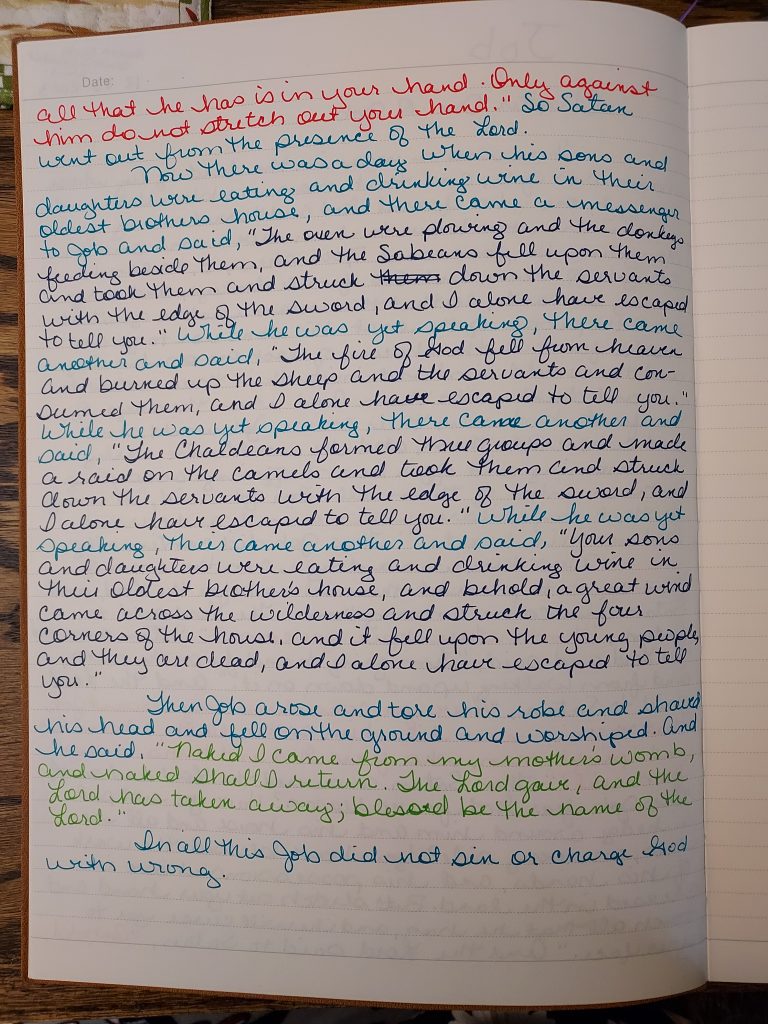 Date:
all that he has is in your hand. Only against
him do not stretch out your hand." So Satan
went out from the presence of the Lord.
Now there was a day when his sons and
daughters were eating and drinking wine in their
oldest brothers house, and there came a messenger
to Job and said, "The oxen were plowing and the donkeys
feeding beside them, and the Sabeans fell upon them
and took them and struck them down the servants
with the edge of the sword, and I alone have escaped
to tell you." While he was yet speaking, there came
another and said, "The fire of God fell from heaven
and burned up the sheep and the servants and con-
sumed them, and I alone have escaped to tell you."
While he was yet speaking, there came another and
said, "The Chaldeans formed three groups and made
a raid on the camels and took them and struck
down the servants with the edge of the sword, and
I alone have escaped to tell you." While he was yet
speaking, their came another and said, "Your sons
and daughters were eating and drinking wine in
their oldest brother's house, and behold, a great wind
came across the wilderness and struck the four
corners of the house, and it fell upon the young people,
and they are dead, and I alone have escaped to tell
you."
Then Job arose and tore his robe and shaved
his head and fell on the ground and worshiped. And
he said, "Naked I came from my mother's womb,
and naked shall I return. The Lord gave, and the
Lord has taken away; blessed be the name of the
Lord."
In all this Job did not sin or charge God
with wrong.